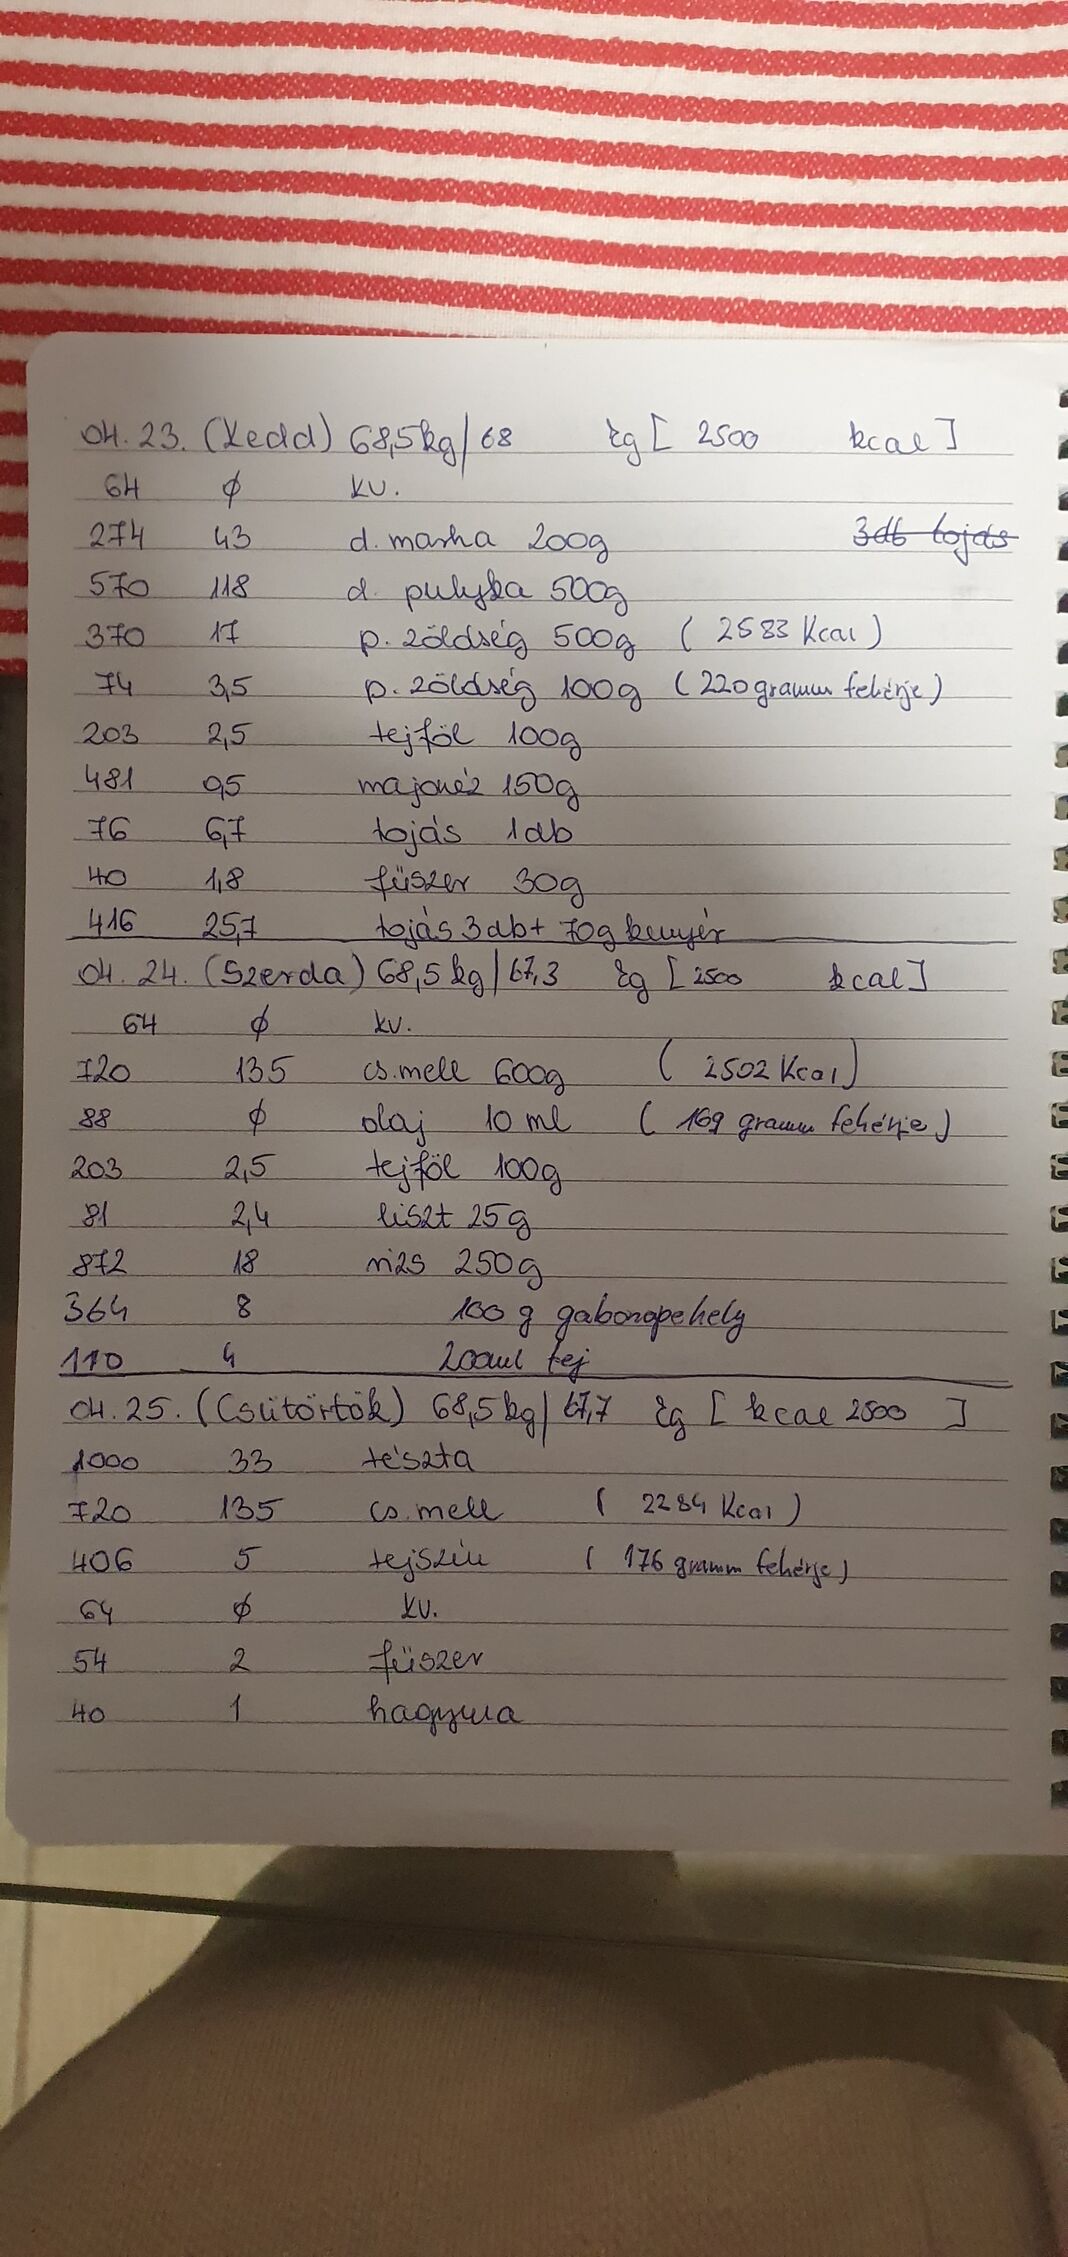 04.23. (Kedd) 68,5kg/68 kg [ 2500 kcal]
64 ø kv.
274 43 d. marha 200g 3db tojás
570 118 d. pulyka 500g
370 17 p. zöldség 500g ( 2583 Kcal )
74 3,5 p. zöldség 100g ( 220 gramm fehérje)
203 2,5 tejföl 100g
481 0,5 majonéz 150g
76 6,7 tojás 1db
40 1,8 fűszer 30g
416 25,7 tojás 3db+ 70g kenyér
04. 24. (Szerda) 68,5 kg/67,3 kg [ 2500 kcal]
64 ø kv.
720 135 cs.mell 600g ( 2502 Kcal)
88 ø olaj 10 ml ( 169 gramm fehérje)
203 2,5 tejföl 100g
81 2,4 liszt 25g
872 18 rizs 250g
364 8 100 g gabonapehely
110 4 200ml tej
04. 25. (Csütörtök) 68,5kg/67,7 kg [ kcal 2500 ]
1000 33 tészta
720 135 cs.mell ( 2284 Kcal )
406 5 tejszín ( 176 gramm fehérje)
64 ø kv.
54 2 fűszer
40 1 hagyma